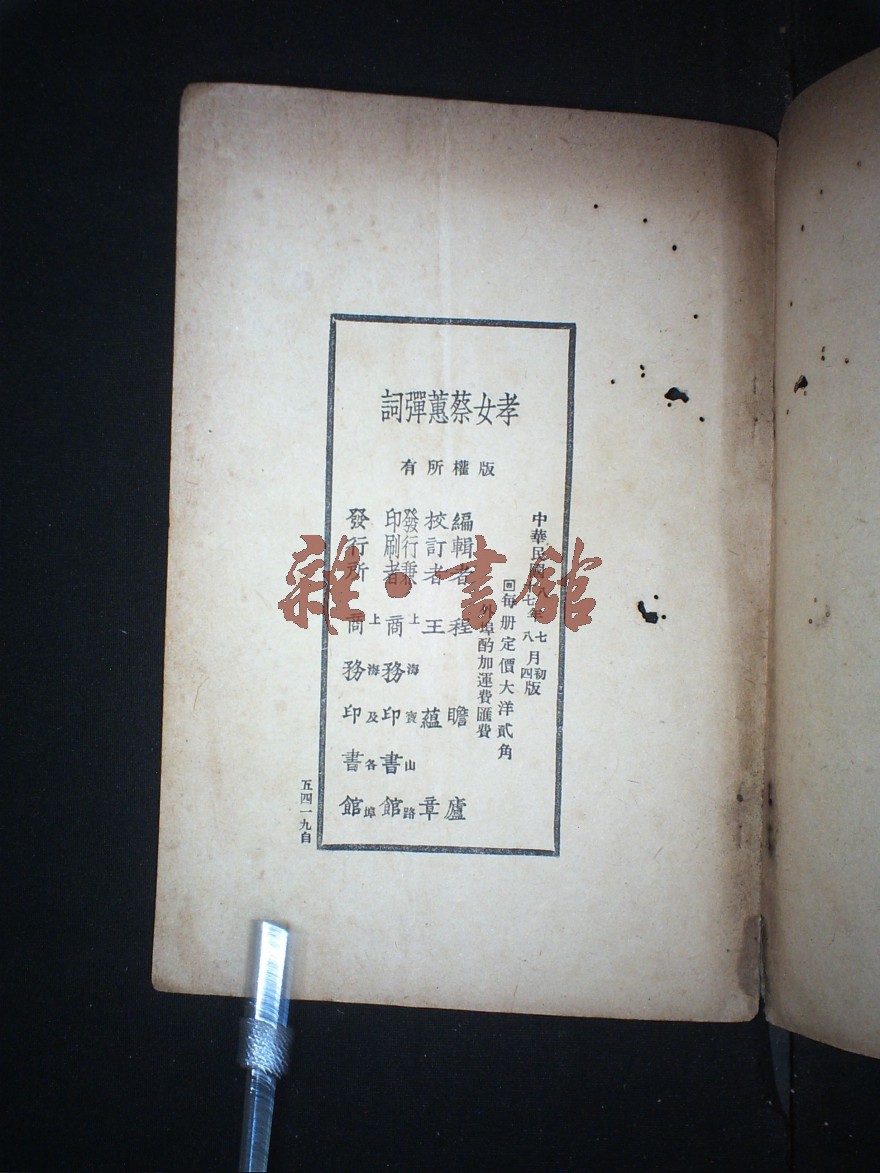 孝女蔡蕙彈詞
版權所有
中華民國八年七月初版
十七年八月四版
回每册定價大洋貳角
外埠酌加運費匯費
編輯者 程瞻廬
校訂者 王蘊章
發行兼印刷者 上海寶山路 商務印書館
發行所 上海及各埠 商務印書館
五四一九自
雜·書館